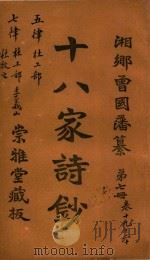 湘鄉曾國藩纂
第七冊
十八家詩鈔
崇雅堂藏板
五律 杜工部
七律 杜工部 李義山
杜牧之